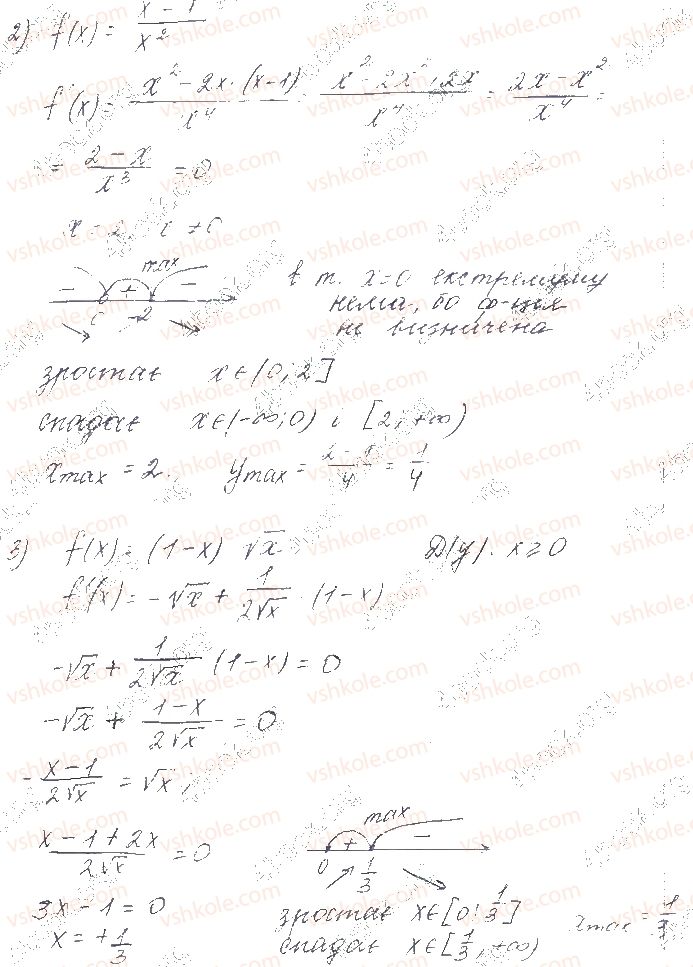 2) f(x) = (x - 1)/x²
f'(x) = (x² - 2x · (x-1))/x⁴ (x² - 2x² + 2x)/x⁴ = (2x - x²)/x⁴ =
= (2 - x)/x³ = 0
x = 2
max
- + -
2
в т. x=0 екстремуму
нема, бо ф-ція
не визначена
зростає x ∈ (0; 2]
спадає x ∈ (-∞; 0) і [2; +∞)
x max = 2. y max = (2 - 1)/4 = 1/4
3) f(x) = (1-x) √x Д(y): x ≥ 0
f'(x) = -√x + 1/(2√x) · (1-x)
-√x + 1/(2√x) (1-x) = 0
-√x + (1-x)/(2√x) = 0
-(x-1)/(2√x) = √x,
(x - 1 + 2x)/(2√x) = 0
max
+ -
0 1/3
3x - 1 = 0
x = +1/3
зростає x ∈ [0; 1/3]
спадає x ∈ [1/3; +∞)
x max = 1/3
vshkole.com